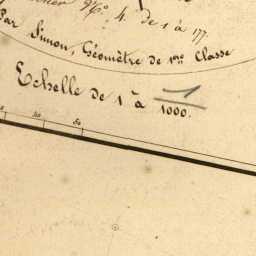 N.º 4. de 1 à 177.
Par Simon, Géomètre de 1ère Classe
Echelle de 1 à 1/1000.